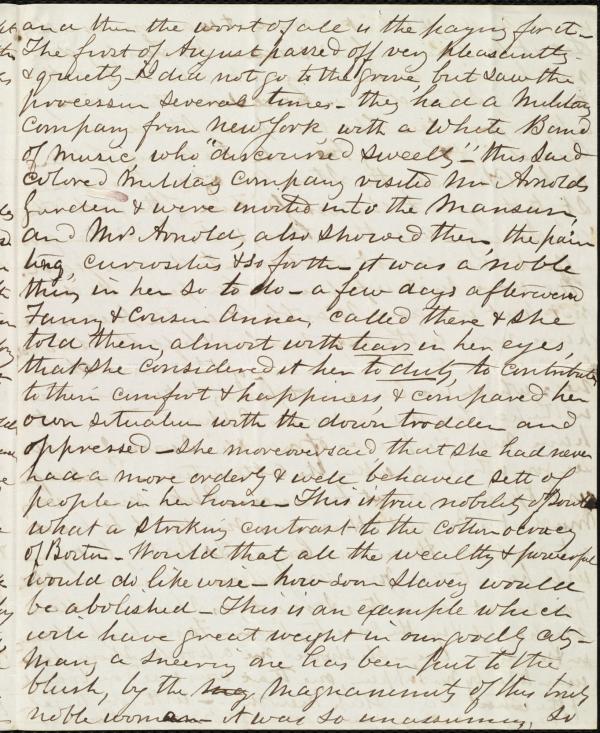 and then the worst of all is the paying for it –
The first of August passed off very pleasantly
& quietly – I did not go to the grove, but saw the
procession several times – they had a Military
Company from New York, with a White Band
of Music, who "discoursed sweetly" – this said
Colored Military Company visited Mr Arnolds
Garden & were invited into the Mansion,
and Mrs Arnold, also showed them, the pain
ting, curiosities & so forth – it was a noble
thing in her so to do – a few days afterward
Fanny & Cousin Anna, called there & she
told them, almost with tears in her eyes,
that she considered it her to duty, to contribute
to their comfort & happiness, & compared her
own situation with the down trodden and
oppressed – She moreover said that she had never
had a more orderly & well behaved sett of
people in her house – This is true nobility of Soul
what a striking contrast to the cottonocracy
of Boston – Would that all the wealthy & powerful
would do likewise – how soon Slavery would
be abolished – This is an example which
will have great weight in our goodly city –
Many a sneering one has been put to the
blush, by the magnanimity of this truly
noble woman – it was so unassuming, so